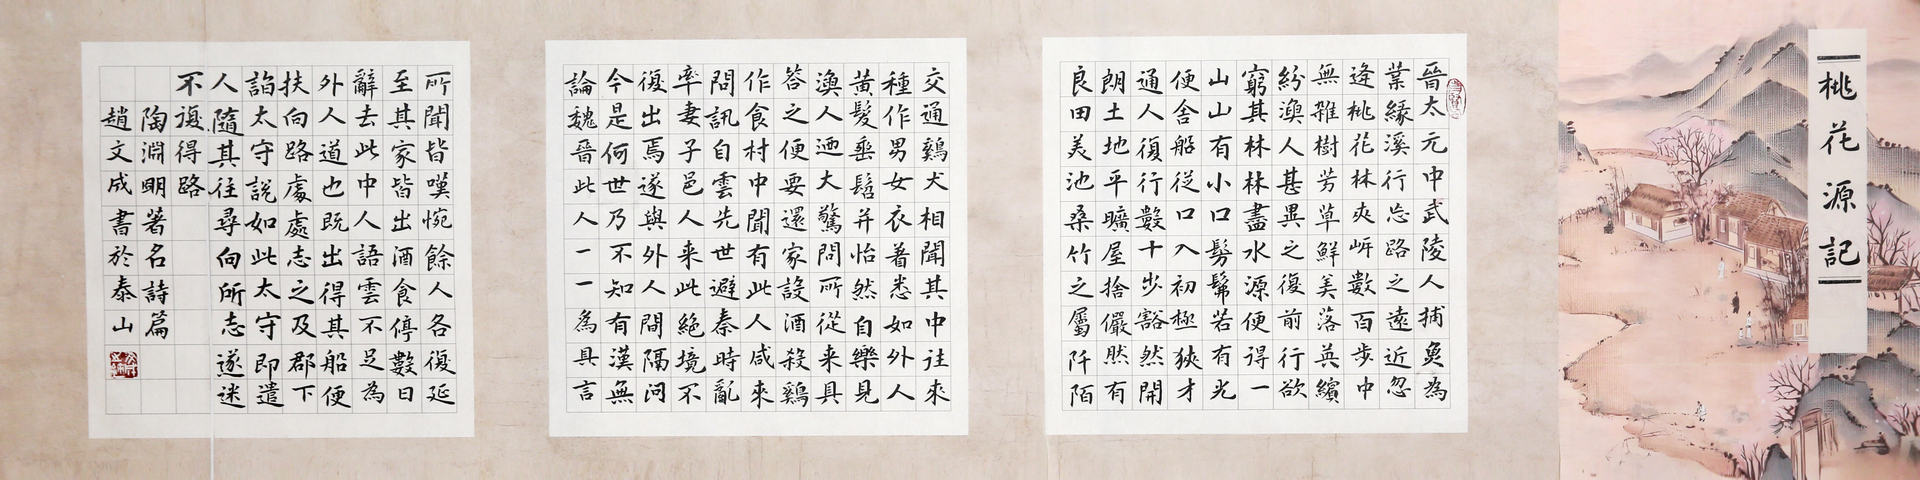 桃花源記
晉太元中武陵人捕魚為
業緣溪行忘路之遠近忽
逢桃花林夾岍數百步中
無雜樹芳草鮮美落英繽
紛漁人甚異之復前行欲
窮其林林盡水源便得一
山山有小口髣髴若有光
便舍船從口入初極狹才
通人復行數十步豁然開
朗土地平曠屋捨儼然有
良田美池桑竹之屬阡陌
交通鷄犬相聞其中往來
種作男女衣着悉如外人
黃髮垂髫并怡然自樂見
漁人迺大驚問所從来具
答之便要還家設酒殺鷄
作食村中聞有此人咸來
問訊自雲先世避秦時亂
率妻子邑人来此絕境不
復出焉遂與外人間隔问
今是何世乃不知有漢無
論魏晉此人一一為具言
所聞皆嘆惋餘人各復延
至其家皆出酒食停數日
辭去此中人語雲不足為
外人道也既出得其船便
扶向路處處志之及郡下
詣太守說如此太守即遣
人隨其往尋向所志遂迷
不復得路
陶淵明著名詩篇
趙文成書於泰山